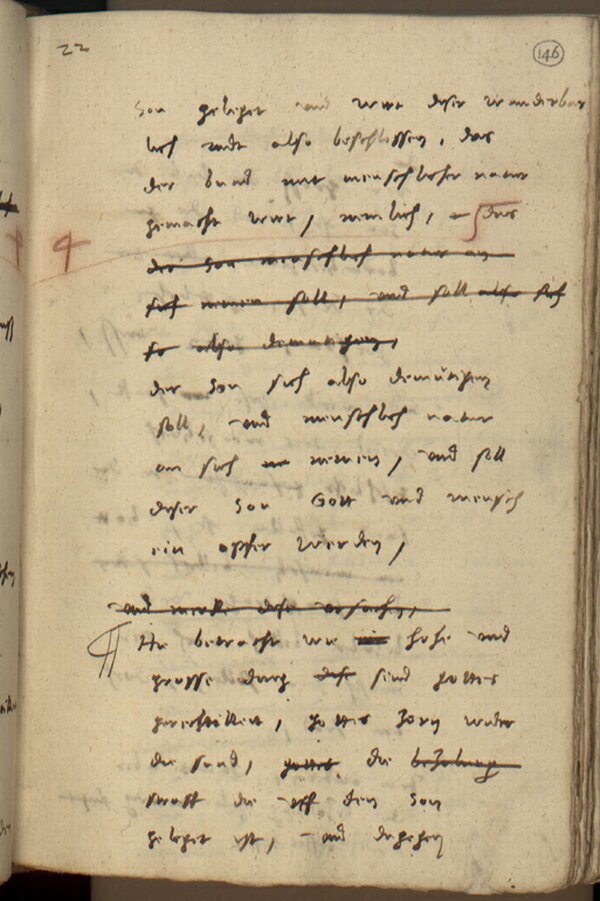 22
146
Son geleget und wirt diser wunderbar
lich radt also beschlossen, das
der bund mit menschlicher natur
gemacht wirt, nemlich, das
der Son menschlich natur an
sich nemen soll, und soll also sich
so also demutigen,
der Son sich also demütigen
soll, und menschlich natur
an sich nemen, und soll
diser Son Gott und mensch
ein opfer werden,
und merke dise ursachen,
Hie betracht wie hohe und
grosse ding dise sind gottes
gerechtikeit, gottes zorn wider
die sund, gottes die bezalung
straff die uff den Son
geleget ist, und dagegen